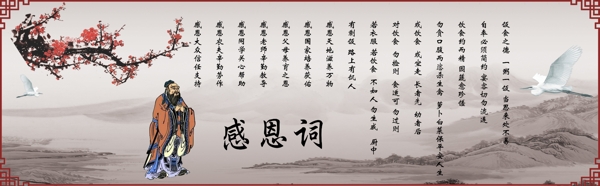 饭食之德 一粥一饭 当思来处不易
自奉必须简约 宴客切勿流连
饮食约而精 园蔬愈珍馐
勿贪口腹而恣杀生禽 萝卜白菜保平安人生
或饮食 或坐走 长者先 幼者后
对饮食 勿拣择 食适可 勿过则
若衣服 若饮食 不如人 勿生戚
有剩饭 路上有饥人
感恩天地滋养万物
感恩国家培养护佑
感恩父母养育之恩
感恩老师辛勤教导
感恩同学关心帮助
感恩农夫辛勤劳作
感恩大众信任支持
感恩词